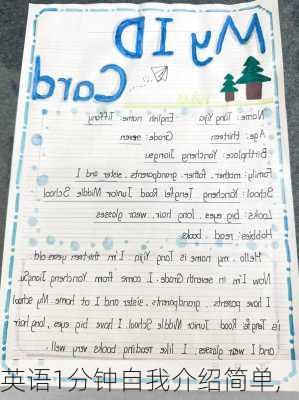 My ID
Card
Name: Tang Yijia English name: Tiffany
Age: thirteen Grade: seven
Birthplace: Yancheng Jiangsu
Family: mother, father, grandparents, sister and I
School: Yancheng Tengfei Road Junior Middle School
Looks: big eyes, long hair, wear glasses
Hobbies: read books
Hello, my name is Tang Yijia. I'm thirteen years old.
Now I'm in seventh Grade. I come from Yancheng Jiangsu
I have parents, grandparents, sister and I at home. My school
is Tengfei Road Junior Middle School. I have big eyes, long hair
and I wear glasses. I like reading books very well.
英语1分钟自我介绍简单,